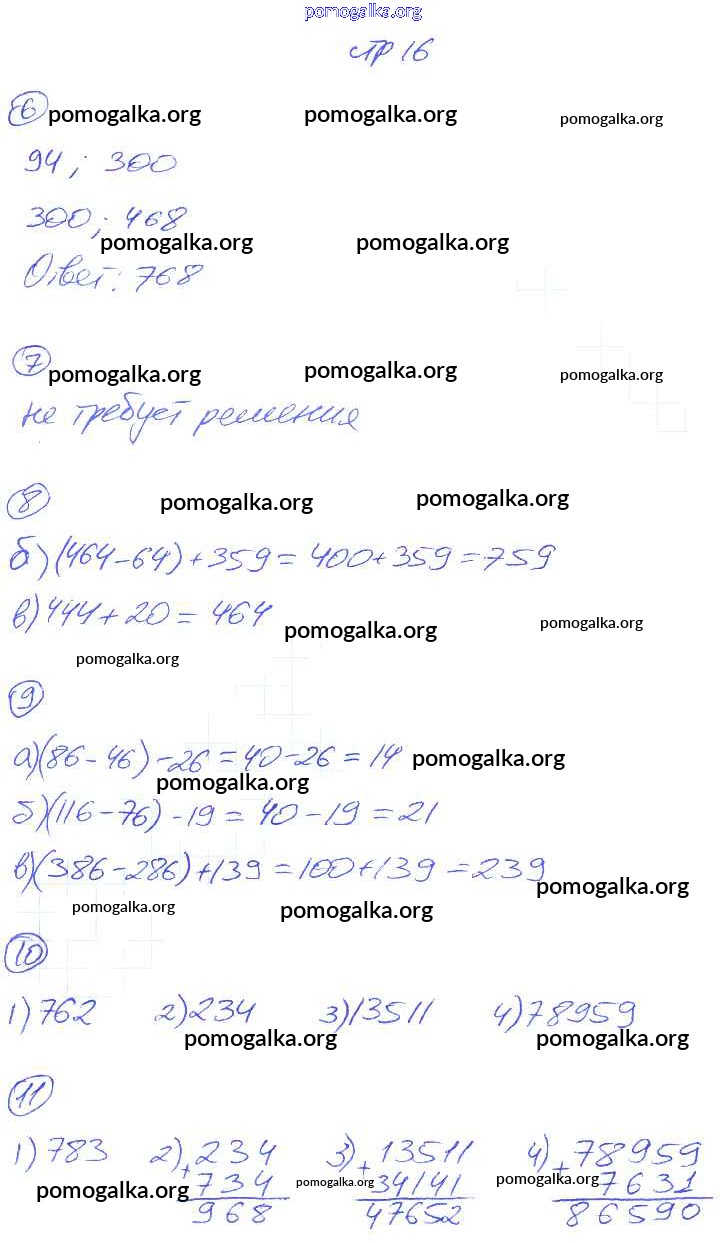 pomogalka.org
стр 16
6 pomogalka.org pomogalka.org pomogalka.org
94; 300
300; 468
pomogalka.org pomogalka.org
Ответ: 768
7 pomogalka.org pomogalka.org pomogalka.org
не требует решения
8 pomogalka.org pomogalka.org
б) (464-64)+359=400+359=759
в) 444+20=464
pomogalka.org pomogalka.org
pomogalka.org
9
а) (86-46)-26=40-26=14 pomogalka.org
pomogalka.org
б) (116-76)-19=40-19=21
в) (386-286)+139=100+139=239
pomogalka.org
pomogalka.org pomogalka.org
10
1) 762 2) 234 3) 13511 4) 78959
pomogalka.org pomogalka.org
11
1) 783 2) + 234 3) + 13511 4) + 78959
pomogalka.org 734 pomogalka.org 34141 pomogalka.org 7631
968 47652 86590